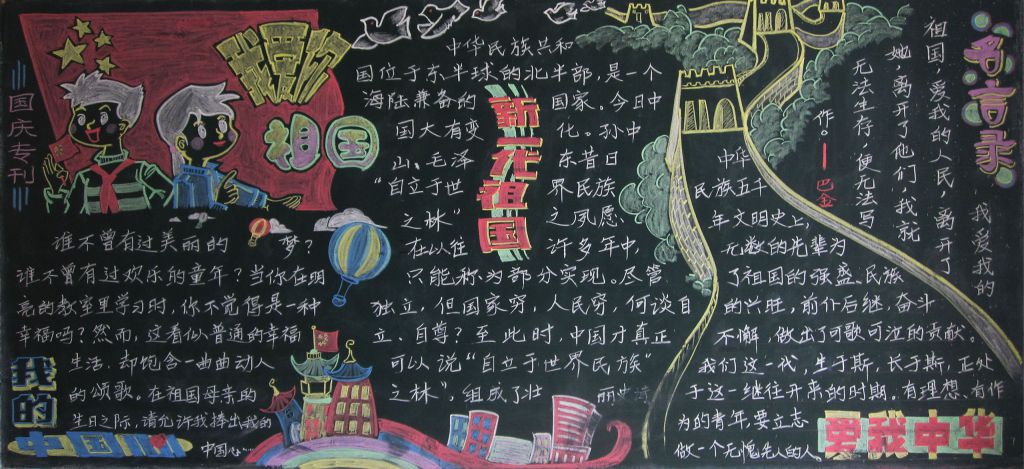 国庆专刊
我爱你
祖国
谁不曾有过美丽的梦?
谁不曾有过欢乐的童年?当你在明
亮的教室里学习时,你不觉得是一种
幸福吗?然而,这看似普通的幸福
生活,却饱含一曲曲动人
的颂歌。在祖国母亲的
生日之际,请允许我捧出我的
中国心……
我的
中国心
新龙祖国
中华民族共和
国位于东半球的北半部,是一个
海陆兼备的国家。今日中
国大有变化。孙中
山、毛泽东昔日
“自立于世界民族
之林”之夙愿
在以往许多年中,
只能称为部分实现。尽管
独立,但国家穷,人民穷,何谈自
立、自尊?至此时,中国才真正
可以说“自立于世界民族”
之林”,组成了壮丽
名言录
我爱我的
祖国,爱我的人民,离开了
她,离开了他们,我就
无法生存,便无法写
作。——巴金
中华
民族五千
年文明史上,
无数的先辈为
了祖国的强盛、民族
的兴旺,前仆后继,奋斗
不懈,做出了可歌可泣的贡献。
我们这一代,生于斯,长于斯,正处
于这一继往开来的时期。有理想、有作
为的青年,要立志
做一个无愧先人的人。
爱我中华